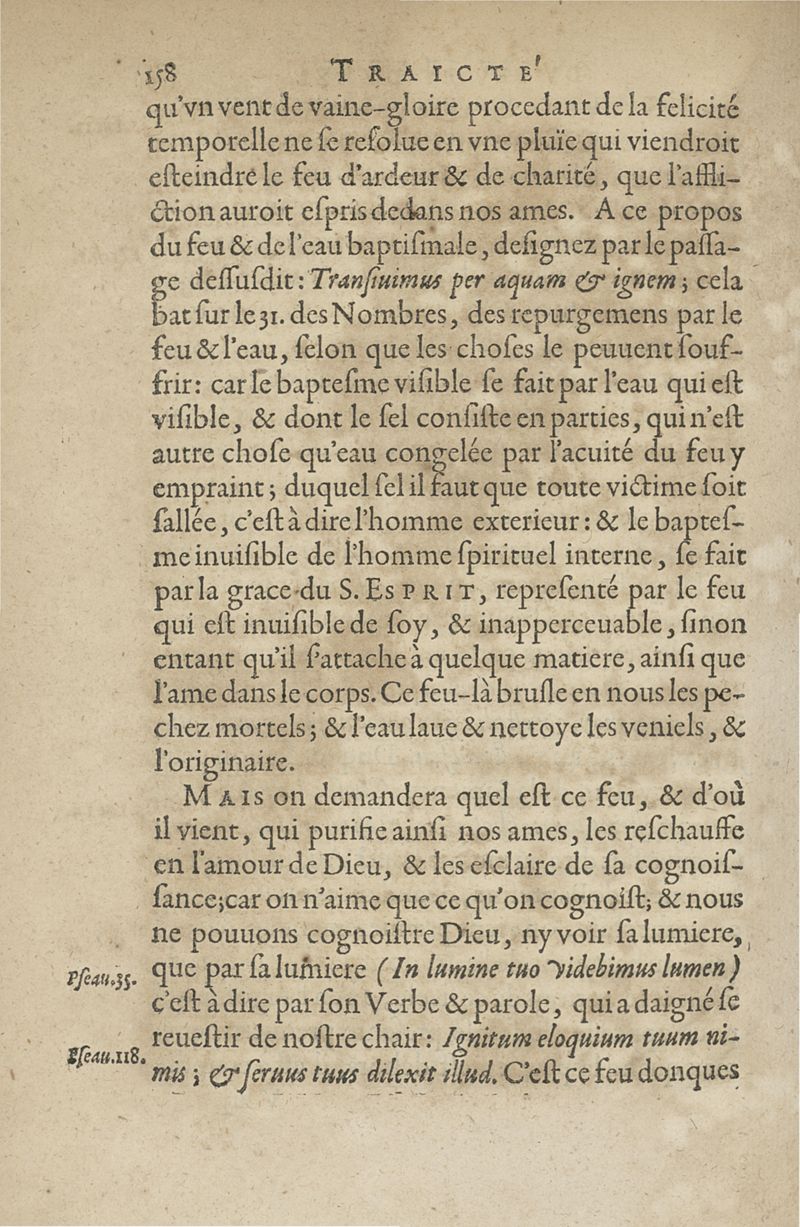 158 TRAICTE'
qu'vn vent de vaine-gloire procedant de la felicité
temporelle ne ſe reſolue en vne pluïe qui viendroit
eſteindre le feu d'ardeur & de charité, que l'affli-
ction auroit eſpris dedans nos ames. A ce propos
du feu & de l'eau baptiſmale, deſignez par le paſſa-
ge deſſuſdit: Tranſiuimus per aquam & ignem; cela
bat ſur le 31. des Nombres, des repurgemens par le
feu & l'eau, ſelon que les choſes le peuuent ſouf-
frir: car le bapteſme viſible ſe fait par l'eau qui eſt
viſible, & dont le ſel conſiſte en parties, qui n'eſt
autre choſe qu'eau congelée par l'acuité du feu y
empraint; duquel ſel il faut que toute victime ſoit
ſallée, c'eſt à dire l'homme exterieur: & le bapteſ-
me inuiſible de l'homme ſpirituel interne, ſe fait
par la grace du S. ESPRIT, repreſenté par le feu
qui eſt inuiſible de ſoy, & inapperceuable, ſinon
entant qu'il ſ'attache à quelque matiere, ainſi que
l'ame dans le corps. Ce feu-là bruſle en nous les pe-
chez mortels; & l'eau laue & nettoye les veniels, &
l'originaire.
MAIS on demandera quel eſt ce feu, & d'où
il vient, qui purifie ainſi nos ames, les reſchauffe
en l'amour de Dieu, & les eſclaire de ſa cognoiſ-
ſance; car on n'aime que ce qu'on cognoiſt; & nous
ne pouuons cognoiſtre Dieu, ny voir ſa lumiere,
Pſeau.35. que par ſa lumiere (In lumine tuo videbimus lumen)
c'eſt à dire par ſon Verbe & parole, qui a daigné ſe
reueſtir de noſtre chair: Ignitum eloquium tuum ni-
Pſeau.118. mis; & ſeruus tuus dilexit illud. C'eſt ce feu donques